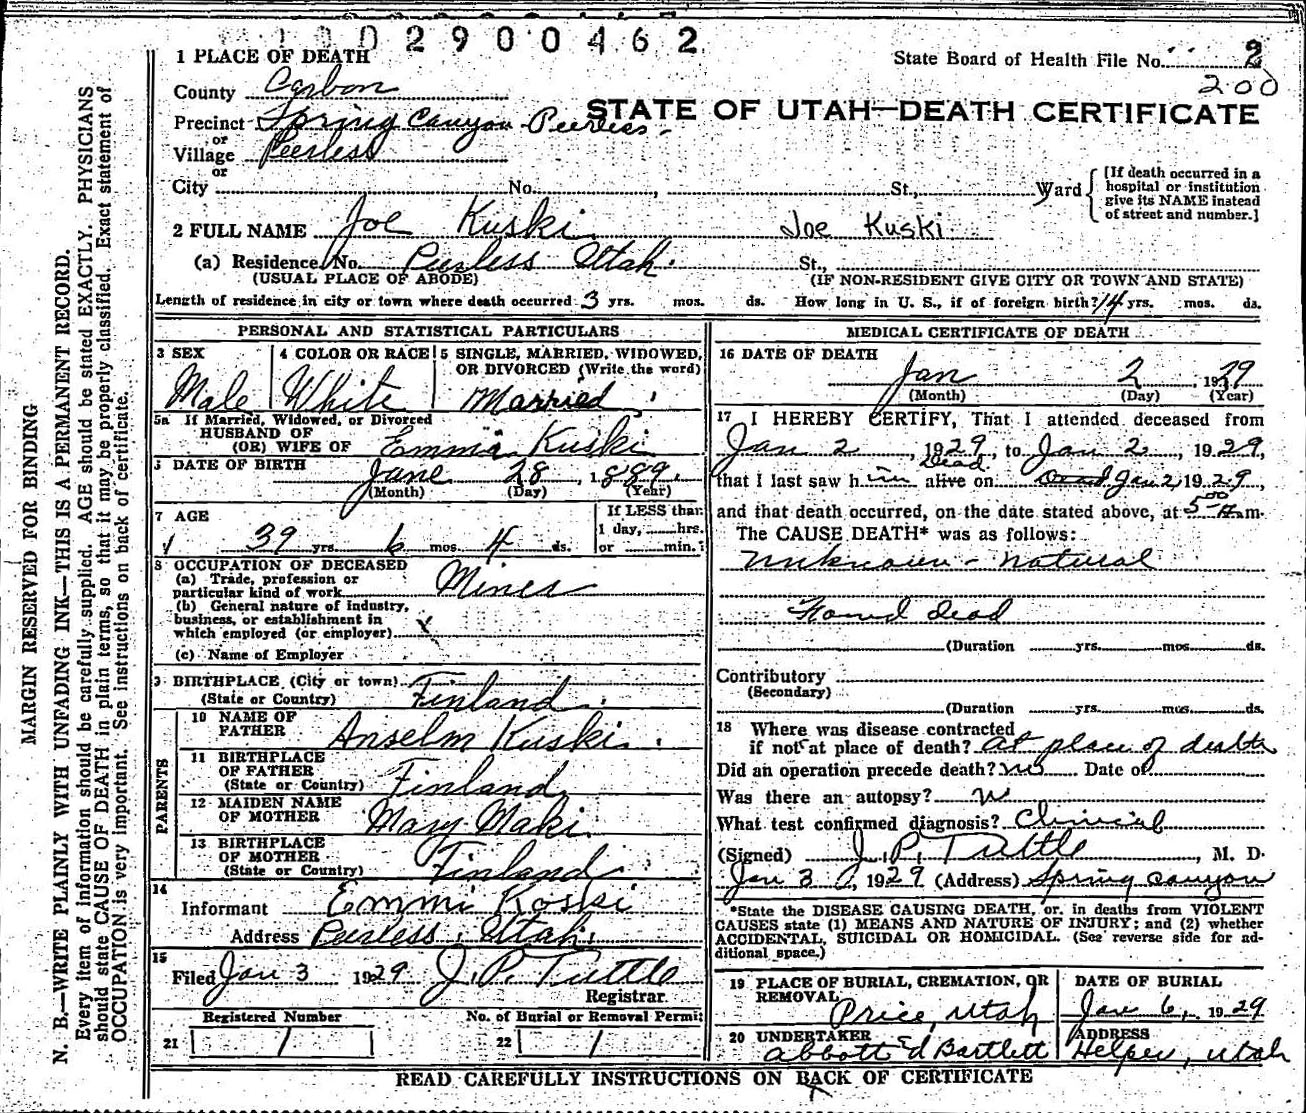 002900462
1 PLACE OF DEATH
State Board of Health File No. 2
200
County Carbon
STATE OF UTAH—DEATH CERTIFICATE
Precinct Spring Canyon - Peerless -
or
Village Peerless
or
City No. , St., Ward
[If death occurred in a hospital or institution give its NAME instead of street and number.]
2 FULL NAME Joe Kuski Joe Kuski
(a) Residence, No. Peerless Utah. St.,
(USUAL PLACE OF ABODE) (IF NON-RESIDENT GIVE CITY OR TOWN AND STATE)
Length of residence in city or town where death occurred 3 yrs. mos. ds. How long in U. S., if of foreign birth? 14 yrs. mos. ds.
PERSONAL AND STATISTICAL PARTICULARS
3 SEX 4 COLOR OR RACE 5 SINGLE, MARRIED, WIDOWED,
OR DIVORCED (Write the word)
Male White Married
5a If Married, Widowed, or Divorced
HUSBAND OF
(OR) WIFE OF Emma Kuski
6 DATE OF BIRTH June 28, 1889.
(Month) (Day) (Year)
7 AGE If LESS than
1 day, hrs.
39 yrs. 6 mos. 4 ds. or min.
8 OCCUPATION OF DECEASED
(a) Trade, profession or
particular kind of work Miner
(b) General nature of industry,
business, or establishment in
which employed (or employer)
(c) Name of Employer
9 BIRTHPLACE (City or town)
(State or Country) Finland
PARENTS
10 NAME OF
FATHER Anselm Kuski.
11 BIRTHPLACE
OF FATHER
(State or Country) Finland
12 MAIDEN NAME
OF MOTHER Mary Maki
13 BIRTHPLACE
OF MOTHER
(State or Country) Finland
14
Informant Emmi Koski
Address Peerless, Utah.
15
Filed Jan 3 1929 J. P. Tuttle
Registrar
Registered Number No. of Burial or Removal Permit
21 22
MEDICAL CERTIFICATE OF DEATH
16 DATE OF DEATH
Jan 2, 1929
(Month) (Day) (Year)
17 I HEREBY CERTIFY, That I attended deceased from
Jan 2, 1929, to Jan 2, 1929,
Dead
that I last saw him alive on Jan 2, 1929,
and that death occurred, on the date stated above, at 5 00 A.m.
The CAUSE DEATH* was as follows:
unknown - natural
Found dead
(Duration yrs. mos. ds.
Contributory
(Secondary)
(Duration yrs. mos. ds.
18 Where was disease contracted
if not at place of death? At place of death
Did an operation precede death? no Date of
Was there an autopsy? no
What test confirmed diagnosis? Clinical
(Signed) J. P. Tuttle, M. D.
Jan 3, 1929 (Address) Spring Canyon
*State the DISEASE CAUSING DEATH, or, in deaths from VIOLENT
CAUSES state (1) MEANS AND NATURE OF INJURY; and (2) whether
ACCIDENTAL, SUICIDAL OR HOMICIDAL. (See reverse side for ad-
ditional space.)
19 PLACE OF BURIAL, CREMATION, OR
REMOVAL Price, Utah
DATE OF BURIAL
Jan 6, 1929
20 UNDERTAKER
Abbott & Bartlett
ADDRESS
Helper, Utah
READ CAREFULLY INSTRUCTIONS ON BACK OF CERTIFICATE
MARGIN RESERVED FOR BINDING
N. B.—WRITE PLAINLY WITH UNFADING INK—THIS IS A PERMANENT RECORD.
Every item of information should be carefully supplied. AGE should be stated EXACTLY. PHYSICIANS
should state CAUSE OF DEATH in plain terms, so that it may be properly classified. Exact statement of
OCCUPATION is very important. See instructions on back of certificate.